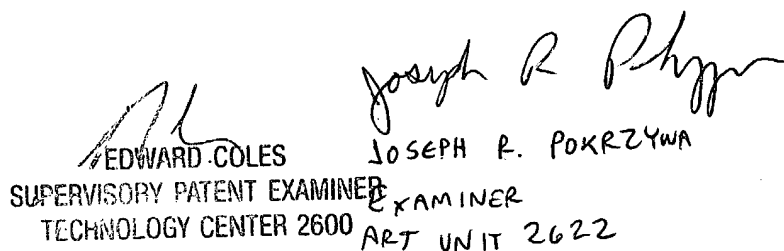 Joseph R P
EDWARD COLES
SUPERVISORY PATENT EXAMINER
TECHNOLOGY CENTER 2600
JOSEPH R. POKRZYWA
EXAMINER
ART UNIT 2622